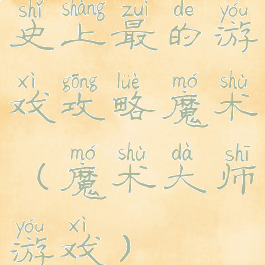 shǐ shàng zuì de yóu
史上最的游
xì gōng lüè mó shù
戏攻略魔术
mó shù dà shī
（魔术大师
yóu xì
游戏）